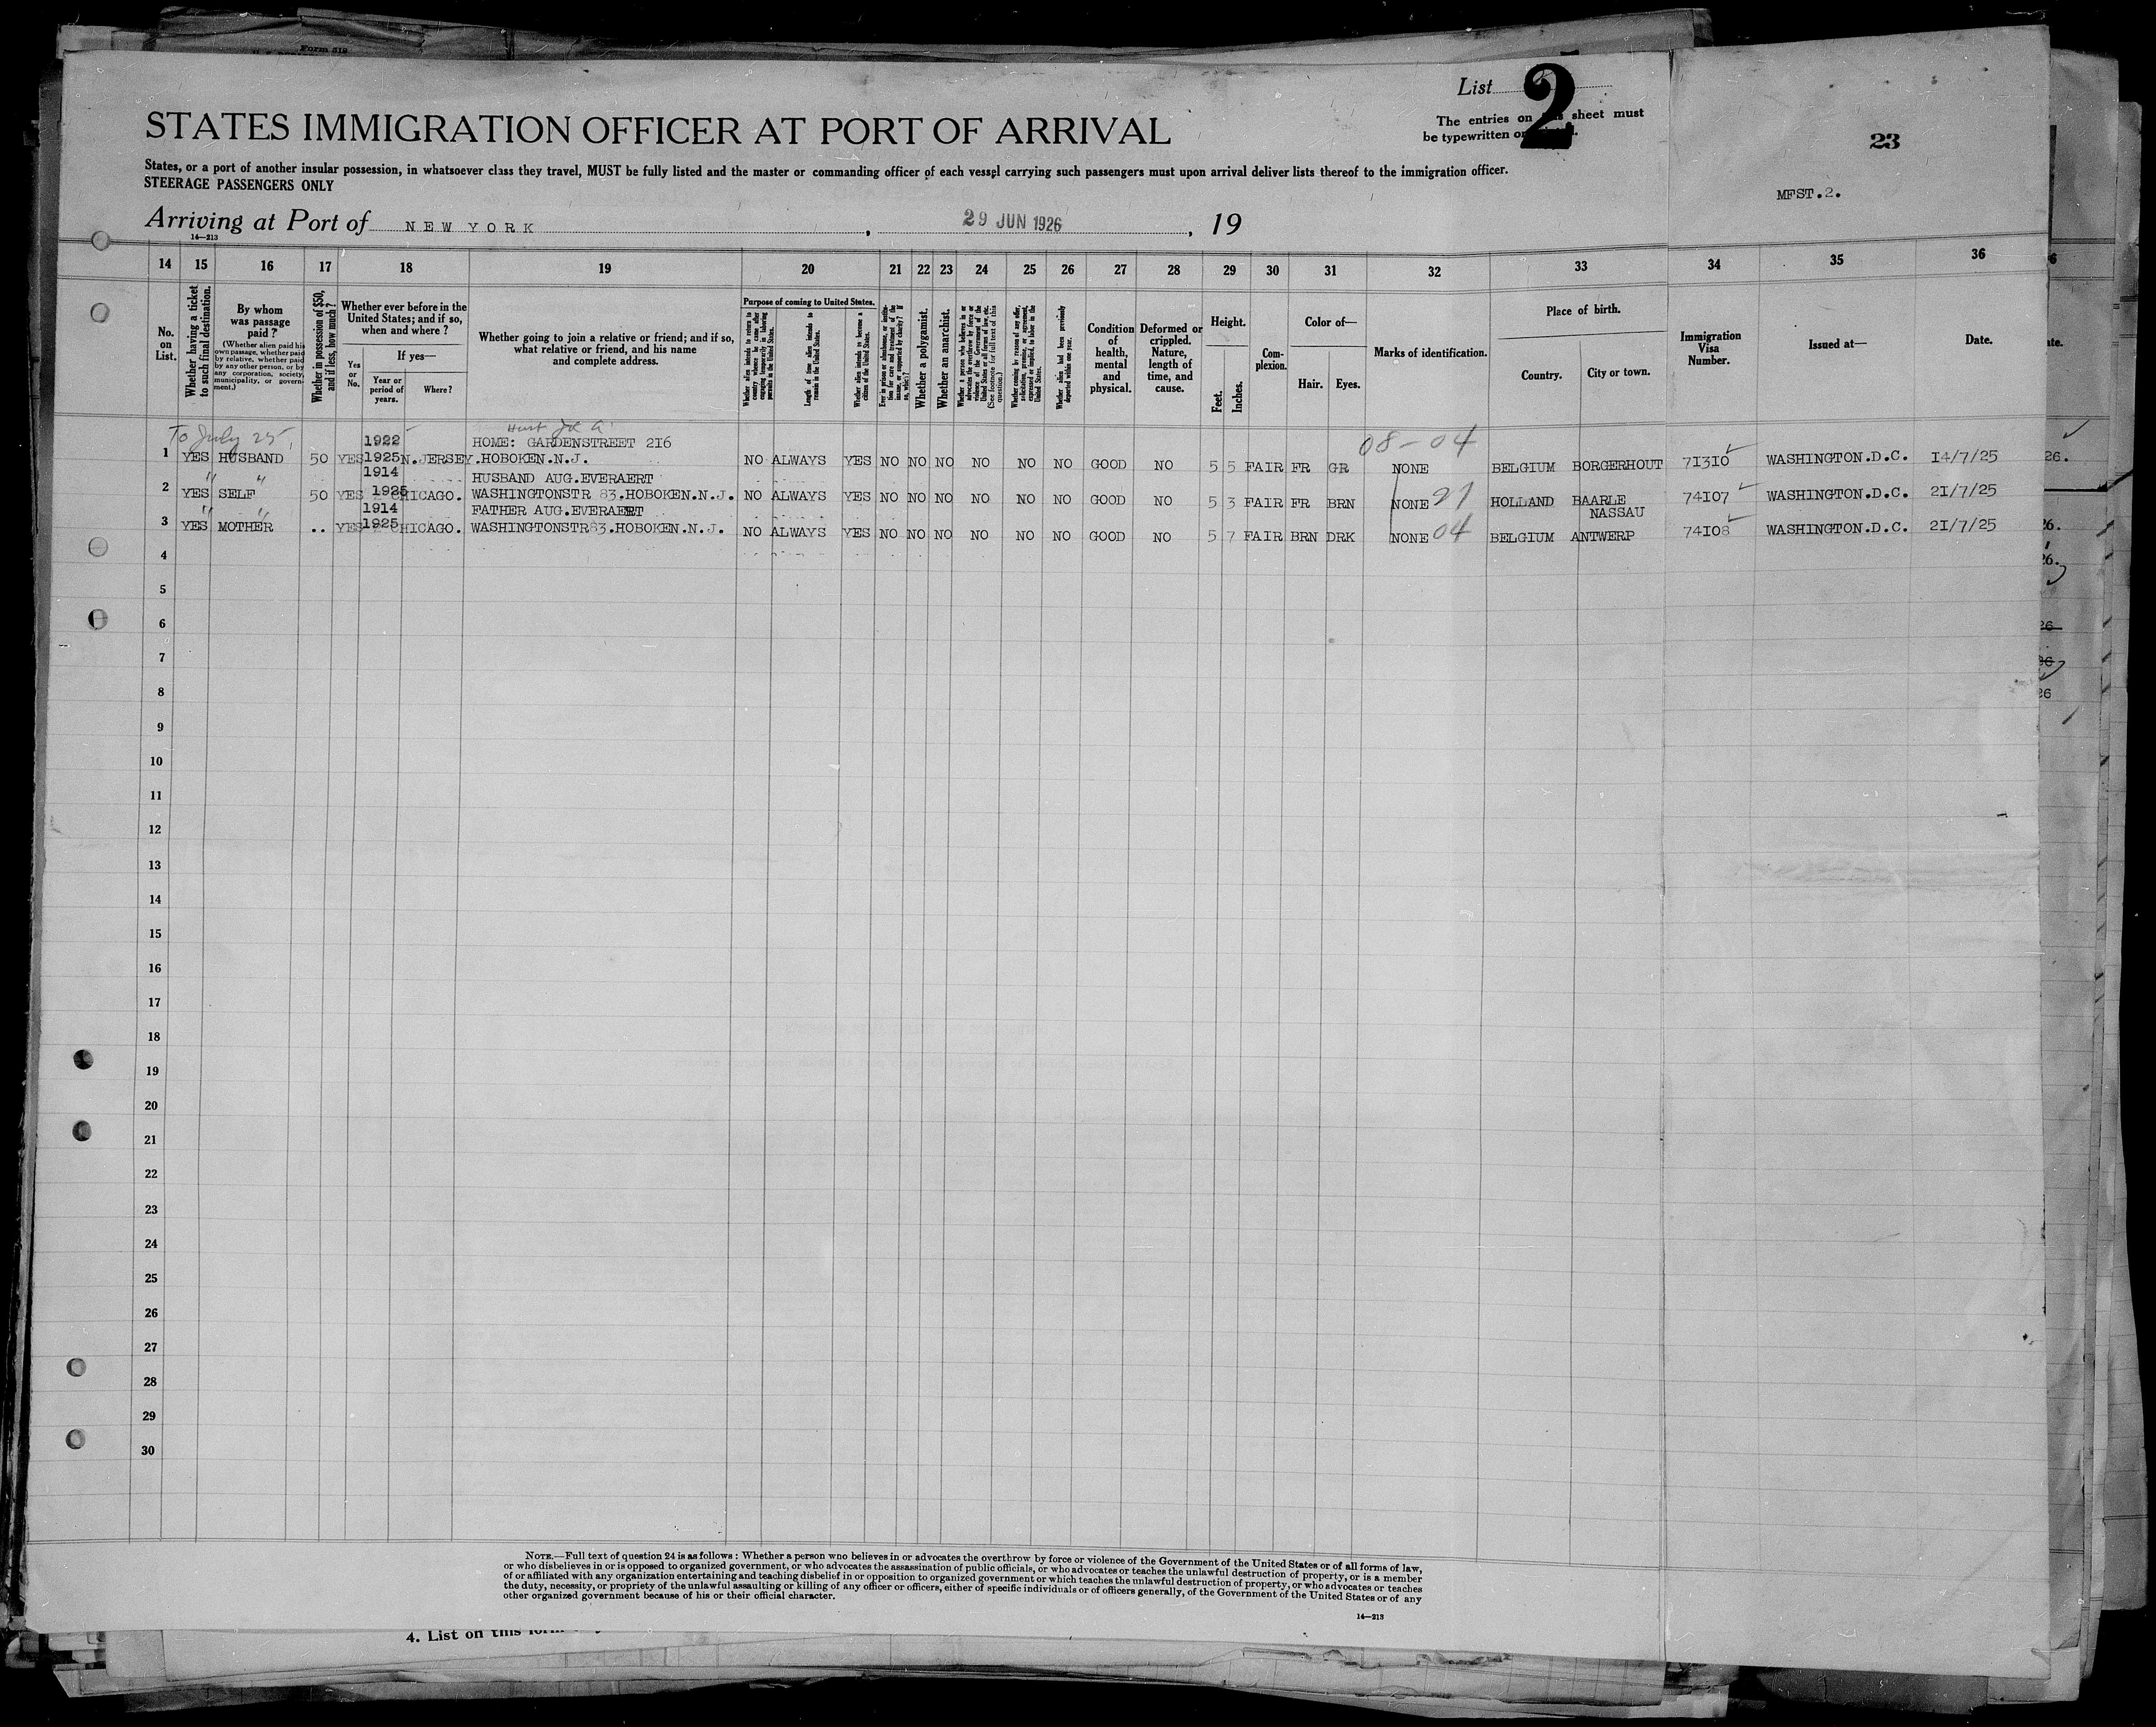 Form 319
List 2
The entries on sheet must
be typewritten or
STATES IMMIGRATION OFFICER AT PORT OF ARRIVAL
23
States, or a port of another insular possession, in whatsoever class they travel, MUST be fully listed and the master or commanding officer of each vessel carrying such passengers must upon arrival deliver lists thereof to the immigration officer.
STEERAGE PASSENGERS ONLY
MFST.2.
Arriving at Port of NEW YORK, 29 JUN 1926, 19
14—213
14 15 16 17 18 19 20 21 22 23 24 25 26 27 28 29 30 31 32 33 34 35 36
No. on List.
Whether having a ticket to such final destination.
By whom was passage paid?
(Whether alien paid his own passage, whether paid by relative, whether paid by any other person, or by any corporation, society, municipality, or government.)
Whether in possession of $50, and if less, how much?
Whether ever before in the United States; and if so, when and where?
Yes or No.
If yes—
Year or period of years.
Where?
Whether going to join a relative or friend; and if so, what relative or friend, and his name and complete address.
Purpose of coming to United States.
Whether alien intends to return to country whence he came after engaging temporarily in laboring pursuits in the United States.
Length of time alien intends to remain in the United States.
Whether alien intends to become a citizen of the United States.
Ever in prison or almshouse, or institution for care and treatment of the insane, or supported by charity? If so, which?
Whether a polygamist.
Whether an anarchist.
Whether a person who believes in or advocates the overthrow by force or violence of the Government of the United States or all forms of law, etc. (See footnote for full text of this question.)
Whether coming by reason of any offer, solicitation, promise, or agreement, expressed or implied, to labor in the United States.
Whether alien had been previously deported within one year.
Condition of health, mental and physical.
Deformed or crippled. Nature, length of time, and cause.
Height.
Feet.
Inches.
Complexion.
Color of—
Hair.
Eyes.
Marks of identification.
Place of birth.
Country.
City or town.
Immigration Visa Number.
Issued at—
Date.
To July 25,
1922 HOME: GARDENSTREET 216 08-04
1 YES HUSBAND 50 YES 1925 N.JERSEY.HOBOKEN.N.J. NO ALWAYS YES NO NO NO NO NO NO GOOD NO 5 5 FAIR FR GR NONE BELGIUM BORGERHOUT 71310 WASHINGTON.D.C. 14/7/25
1914 HUSBAND AUG.EVERAERT
2 YES SELF 50 YES 1925 CHICAGO. WASHINGTONSTR 83.HOBOKEN.N.J. NO ALWAYS YES NO NO NO NO NO NO GOOD NO 5 3 FAIR FR BRN NONE 21 HOLLAND BAARLE NASSAU 74107 WASHINGTON.D.C. 21/7/25
1914 FATHER AUG.EVERAERT
3 YES MOTHER .. YES 1925 CHICAGO. WASHINGTONSTR83.HOBOKEN.N.J. NO ALWAYS YES NO NO NO NO NO NO GOOD NO 5 7 FAIR BRN DRK NONE 04 BELGIUM ANTWERP 74108 WASHINGTON.D.C. 21/7/25
4
5
6
7
8
9
10
11
12
13
14
15
16
17
18
19
20
21
22
23
24
25
26
27
28
29
30
NOTE.—Full text of question 24 is as follows: Whether a person who believes in or advocates the overthrow by force or violence of the Government of the United States or of all forms of law,
or who disbelieves in or is opposed to organized government, or who advocates the assassination of public officials, or who advocates or teaches the unlawful destruction of property, or is a member
of or affiliated with any organization entertaining and teaching disbelief in or opposition to organized government or which teaches the unlawful destruction of property, or who advocates or teaches
the duty, necessity, or propriety of the unlawful assaulting or killing of any officer or officers, either of specific individuals or of officers generally, of the Government of the United States or of any
other organized government because of his or their official character.
14—213
4. List on this